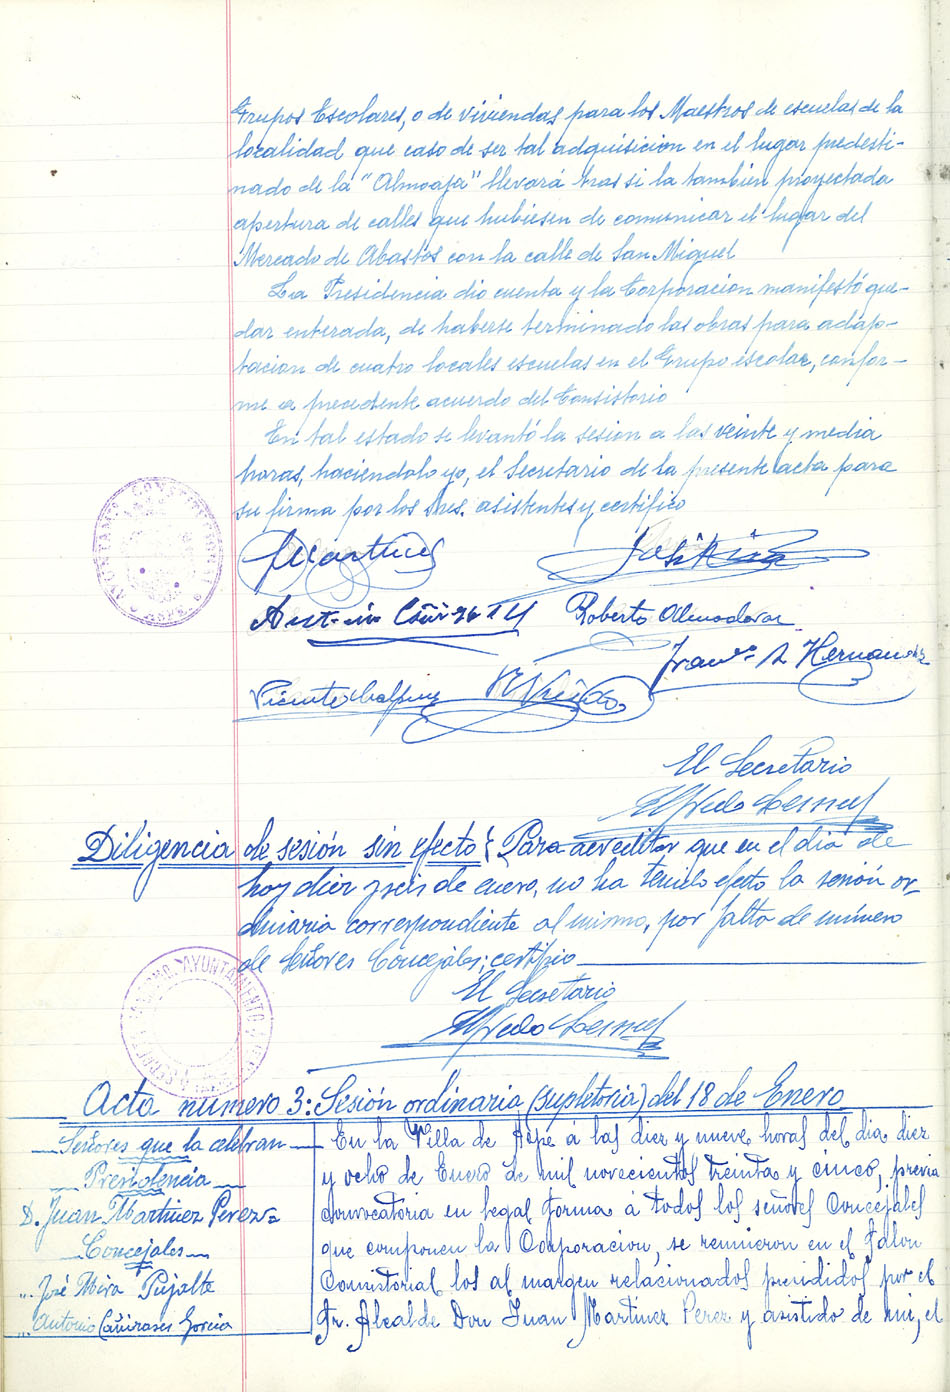 Grupos Escolares, o de viviendas para los Maestros de escuelas de la
localidad que caso de ser tal adquisicion en el lugar predesti-
nado de la "Almoaja" llevará tras si la tambien proyectada
apertura de calles que hubiesen de comunicar el lugar del
Mercado de Abastos con la calle de San Miguel
La Presidencia dio cuenta y la Corporacion manifestó que-
dar enterada, de haberse terminado las obras para adap-
tacion de cuatro locales escuelas en el Grupo escolar, confor-
me a precedente acuerdo del Consistorio
En tal estado se levantó la sesion a las veinte y media
horas, haciendolo yo, el Secretario de la presente acta para
su firma por los Sres. asistentes y certifico
JMartinez
José Mira
Roberto Almodovar
Franco A Hernandez
Vicente
El Secretario
Alfredo
Diligencia de sesión sin efecto { Para acreditar que en el dia de
hoy diez y seis de enero, no ha tenido efecto la sesión or-
dinaria correspondiente al mismo, por falta de número
de Señores Concejales; certifico
AYUNTAMIENTO
El Secretario
Alfredo
Acta numero 3: Sesión ordinaria (supletoria) del 18 de Enero
Señores que la celebran
Presidencia
D. Juan Martinez Perez
Concejales
" José Mira Pujalte
" Antonio Cañizares Garcia
En la Villa de Aspe á las diez y nueve horas del dia diez
y ocho de Enero de mil novecientos treinta y cinco, previa
convocatoria en legal forma á todos los señores Concejales
que componen la Corporacion, se reunieron en el Salon
Consistorial los al margen relacionados presididos por el
Sr. Alcalde Don Juan Martinez Perez y asistido de mi, el